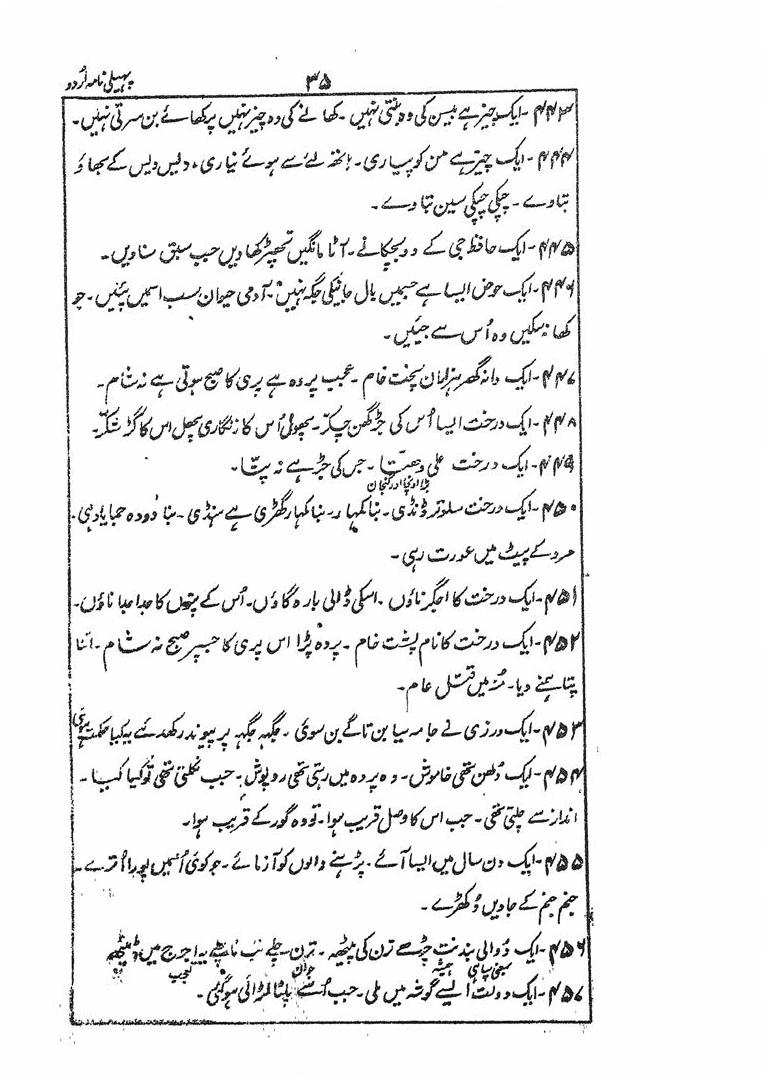 پہیلی نامہ اردو
۳۵
۴۴۳- ایک چیز ہے بیسن کی وہ بنتی نہیں۔ کھانے کی وہ چیز نہیں پر کھائے بن سرتی نہیں۔
۴۴۴- ایک چیز ہے من کو پیاری۔ ہاتھ لئے سے ہوئے نیاری، دیس دیس کے بھاؤ
بتاوے۔ چپکی چپکی سین بتاوے۔
۴۴۵- ایک حافظ جی کے دو بچکانے۔ آٹا مانگیں تھپڑ کھاویں جب سبق سناویں۔
۴۴۶- ایک حوض ایسا ہے جسمیں بال جانیکی جگہ نہیں۔ آدمی حیوان سب اسمیں پئیں۔ جو
کھا نہ سکیں وہ اُس سے جئیں۔
۴۴۷- ایک دانہ گھر ہزاران پخت خام۔ عجب پردہ ہے پری کا صبح ہوتی ہے نہ شام۔
۴۴۸- ایک درخت ایسا اُس کی جڑ گھن چکر۔ پھول اُس کا زنگاری پھل اس کا گڑ شکر۔
۴۴۹- ایک درخت علی دھتا۔ جس کی جڑ ہے نہ پتا۔
بڑا اونچا اور گنجان
۴۵۰- ایک درخت سلوتر ڈنڈی۔ بنا کمہار گھڑی ہے ہنڈی۔ بنا دودہ جمایا دہی۔
مرد کے پیٹ میں عورت رہی۔
۴۵۱- ایک درخت کا اجگر ناؤں۔ اسکی ڈالی بارہ گاؤں۔ اُس کے پتوں کا جدا جدا ناؤں۔
۴۵۲- ایک درخت کا نام پشت خام۔ پردہ پڑا اس پری کا جسپر صبح نہ شام۔ اتنا
پتا ہمنے دیا۔ مُنہ میں قتل عام۔
۴۵۳- ایک درزی نے جامہ سیا بن تاگے بن سوئی۔ جگہہ جگہہ پر پیوند رکھدئے یہ کیا حکمت ہوئی
۴۵۴- ایک دُلھن تھی خاموش۔ وہ پردہ میں رہتی تھی روپوش۔ جب نکلتی تھی تو کیا کیا۔
انداز سے چلتی تھی۔ جب اس کا وصل قریب ہوا۔ تو وہ گور کے قریب ہوا۔
۴۵۵- ایک دن سال میں ایسا آئے۔ پڑہنے والوں کو آزمائے۔ جو کوئی اُسمیں پورا اُترے۔
جنم جنم کے جاویں دُکھڑے۔
۴۵۶- ایک دُوالی بندنت چڑھے ترن کی پیٹھہ۔ ترن چلے تب ناپٹے یہ اچرج میں ڈیٹھہ
یعنی سپاہی ہمیشہ جوان تعجب
۴۵۷- ایک دولت ایسے گوشہ میں ملی۔ جب اُسے پلٹا لڑائی ہوگئی۔